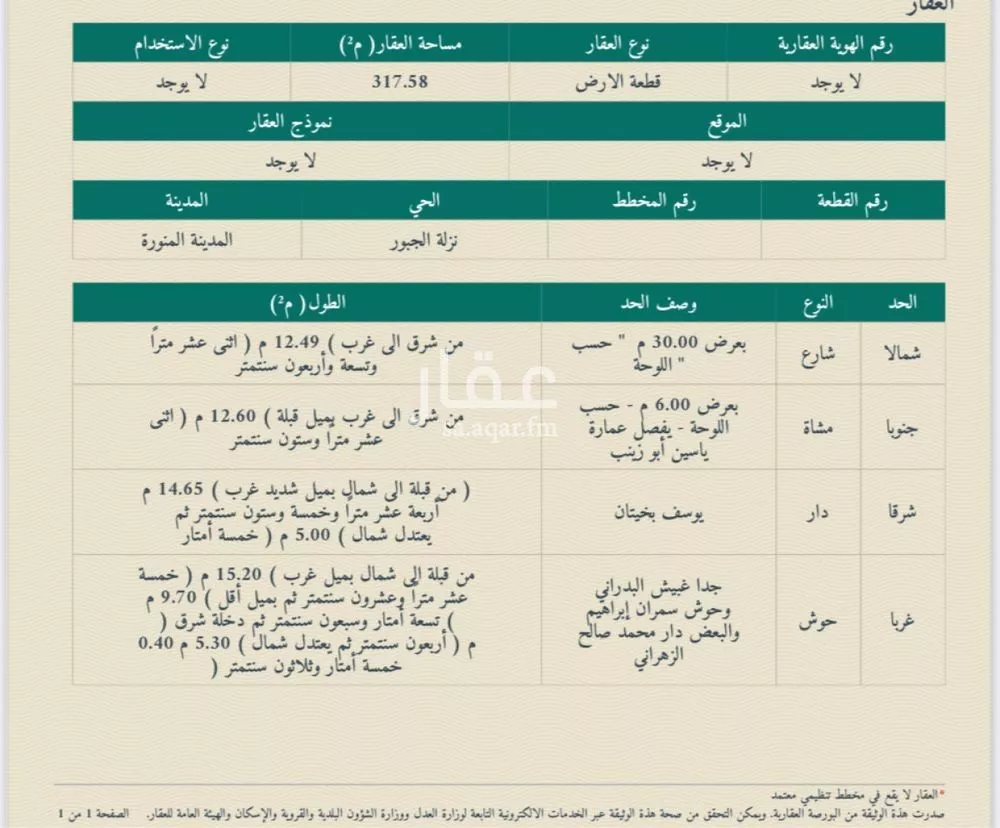 العقار
رقم الهوية العقارية نوع العقار مساحة العقار( م²) نوع الاستخدام
لا يوجد قطعة الارض 317.58 لا يوجد
الموقع نموذج العقار
لا يوجد لا يوجد
رقم القطعة رقم المخطط الحي المدينة
نزلة الجبور المدينة المنورة
الحد النوع وصف الحد الطول( م²)
شمالا شارع
بعرض 30.00 م " حسب
اللوحة "
من شرق الى غرب ) 12.49 م ( اثنى عشر متراً
وتسعة وأربعون سنتمتر
جنوبا مشاة
بعرض 6.00 م - حسب
اللوحة - يفصل عمارة
ياسين أبو زينب
من شرق الى غرب بميل قبلة ) 12.60 م ( اثنى
عشر متراً وستون سنتمتر
شرقا دار يوسف بخيتان
( من قبلة الى شمال بميل شديد غرب ) 14.65 م
أربعة عشر متراً وخمسة وستون سنتمتر ثم
يعتدل شمال ) 5.00 م ( خمسة أمتار
غربا حوش
جدا غبيش البدراني
وحوش سمران إبراهيم
والبعض دار محمد صالح
الزهراني
من قبلة الى شمال بميل غرب ) 15.20 م ( خمسة
عشر متراً وعشرون سنتمتر ثم بميل أقل ) 9.70 م
) تسعة أمتار وسبعون سنتمتر ثم دخلة شرق (
م ( أربعون سنتمتر ثم يعتدل شمال ) 5.30 م 0.40
خمسة أمتار وثلاثون سنتمتر (
عقار
sa.aqar.fm
*العقار لا يقع في مخطط تنظيمي معتمد
صدرت هذة الوثيقة من البورصة العقارية. ويمكن التحقق من صحة هذة الوثيقة عبر الخدمات الالكترونية التابعة لوزارة العدل ووزارة الشؤون البلدية والقروية والإسكان والهيئة العامة للعقار. الصفحة 1 من 1